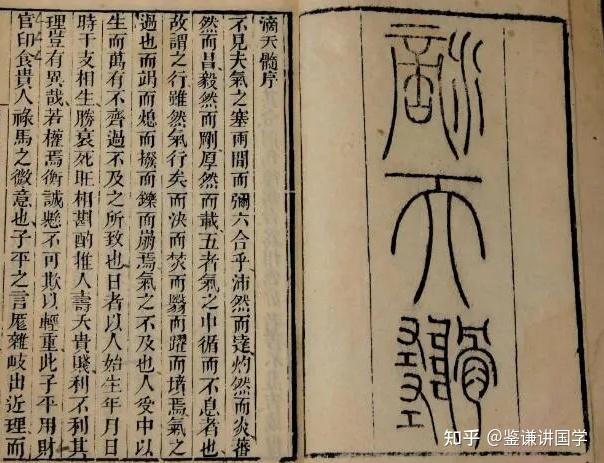 滴天髓
滴天髓序
不見夫氣之塞兩間而彌六合乎沛然而達灼然而炎蕃
然而昌毅然而剛厚然而載五者氣之中循而不息者也
故謂之行雖然氣行矣而決而焚而翳而躍而墳焉氣之
過也而竭而熄而撥而鑠而崩焉氣之不及也人受中以
生而萬有不齊過不及之所致也日者以人始生年月日
時干支相生勝衰死旺相斟酌推人壽夭貴賤利不利其
理豈有異哉若權焉衡誠懸不可欺以輕重此子平用財
官印食貴人祿馬之微意也子平之言厖雜岐出近理而
知乎 @鉴谦讲国学